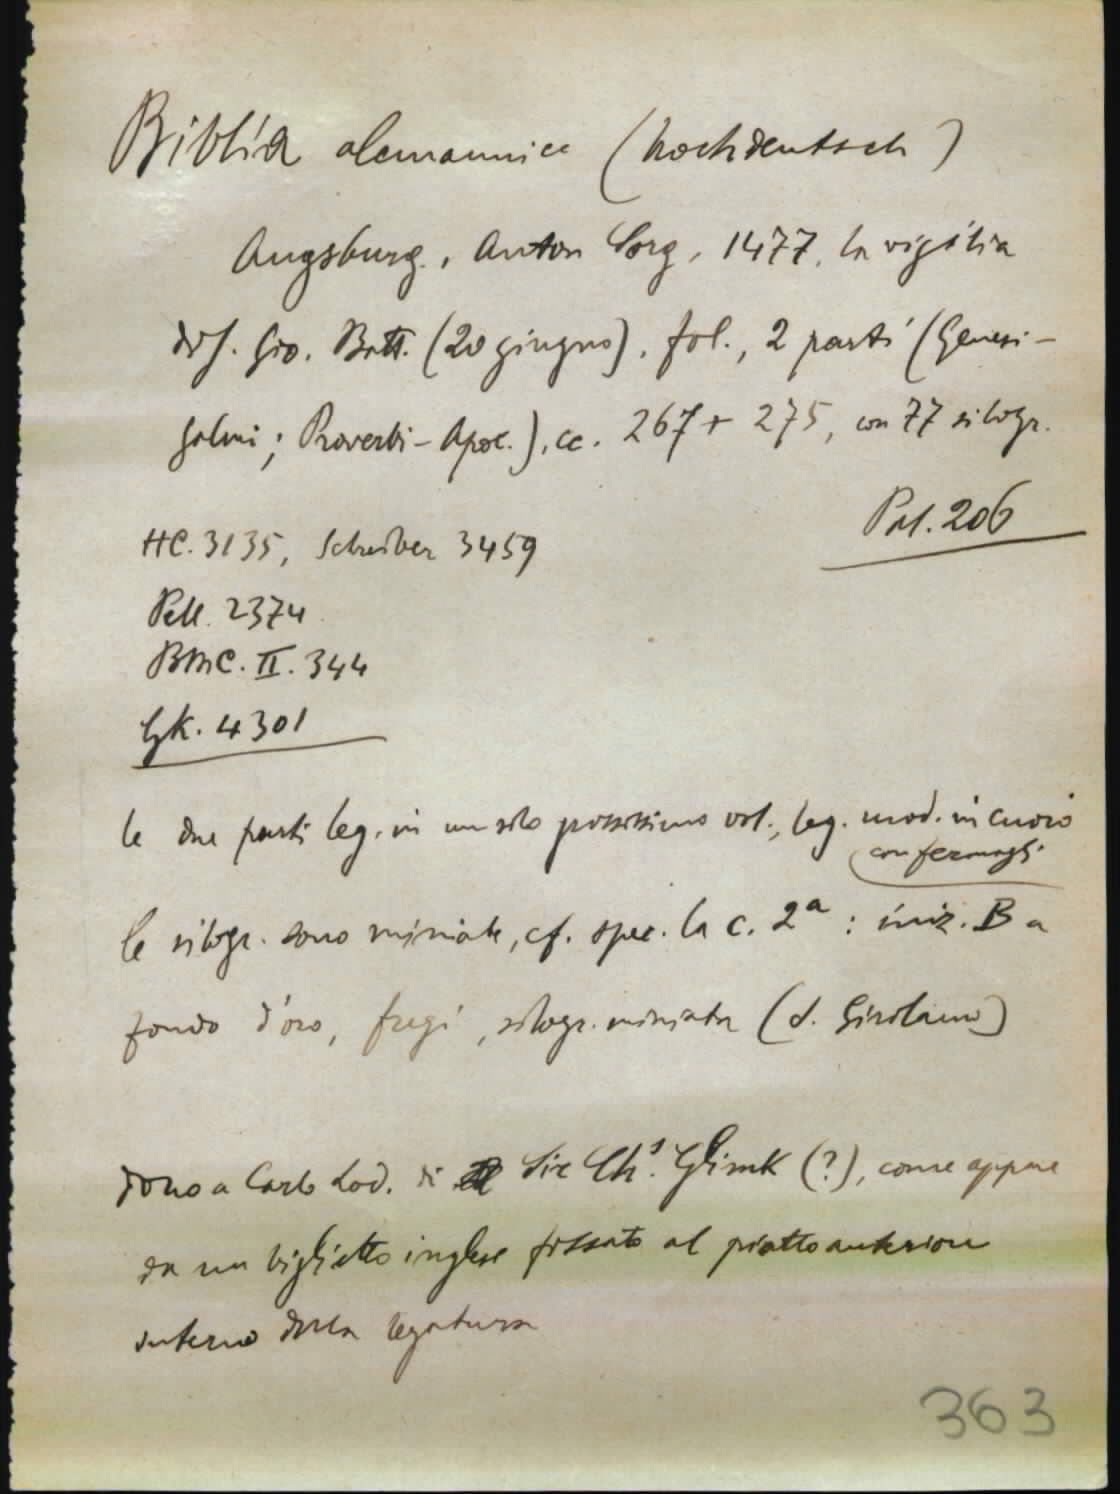 Biblia alemannica (hochdeutsch)
Augsburg, Anton Sorg, 1477, la vigilia
di S. Gio. Batt. (20 giugno), fol., 2 parti (Genesi-
Salmi; Proverbi-Apoc.), cc. 267+275, con 77 silogr.
Pal. 206
HC. 3135, Schreiber 3459
Pell. 2374
BMC. II. 344
GK. 4301
le due parti leg. in un solo grossissimo vol., leg. mod. in cuoio
con fermagli
le silogr. sono miniate, cf. spec. la c. 2a : iniz. B a
fondo d'oro, fregi, silogr. miniata (S. Girolamo)
dono a Carlo Lod. di Sir Chs. Glimk (?), come appare
da un biglietto inglese fissato al piatto anteriore
interno della legatura
363